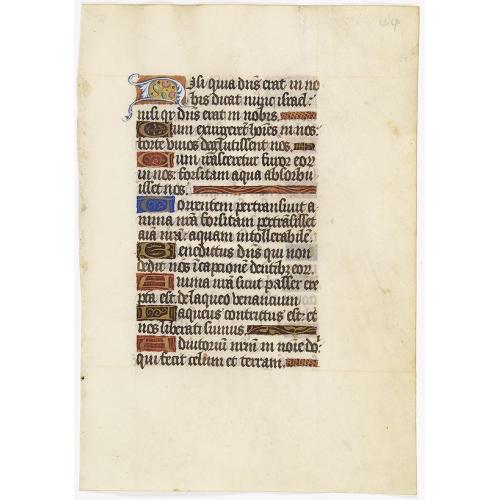 44
Nisi quia dns erat in no
bis dicat nunc israel:
nisi qr dns erat in nobis.
Cum exurgerent hoies in nos:
forte vivos deglutissent nos.
Cum irasceretur furor eor
in nos: forsitam aqua absorbu
isset nos.
Torrentem pertransivit a
nima nra forsitam pertrasisset
aia nra: aquam intollerabile.
Benedictus dns qui non
dedit nos i captione dentib eor.
Anima nra sicut passer ere
pta est: de laqueo venantium
Laqueus contritus est: et
nos liberati sumus.
Adiutorium nrm in noie do:
qui fecit celum et terram.